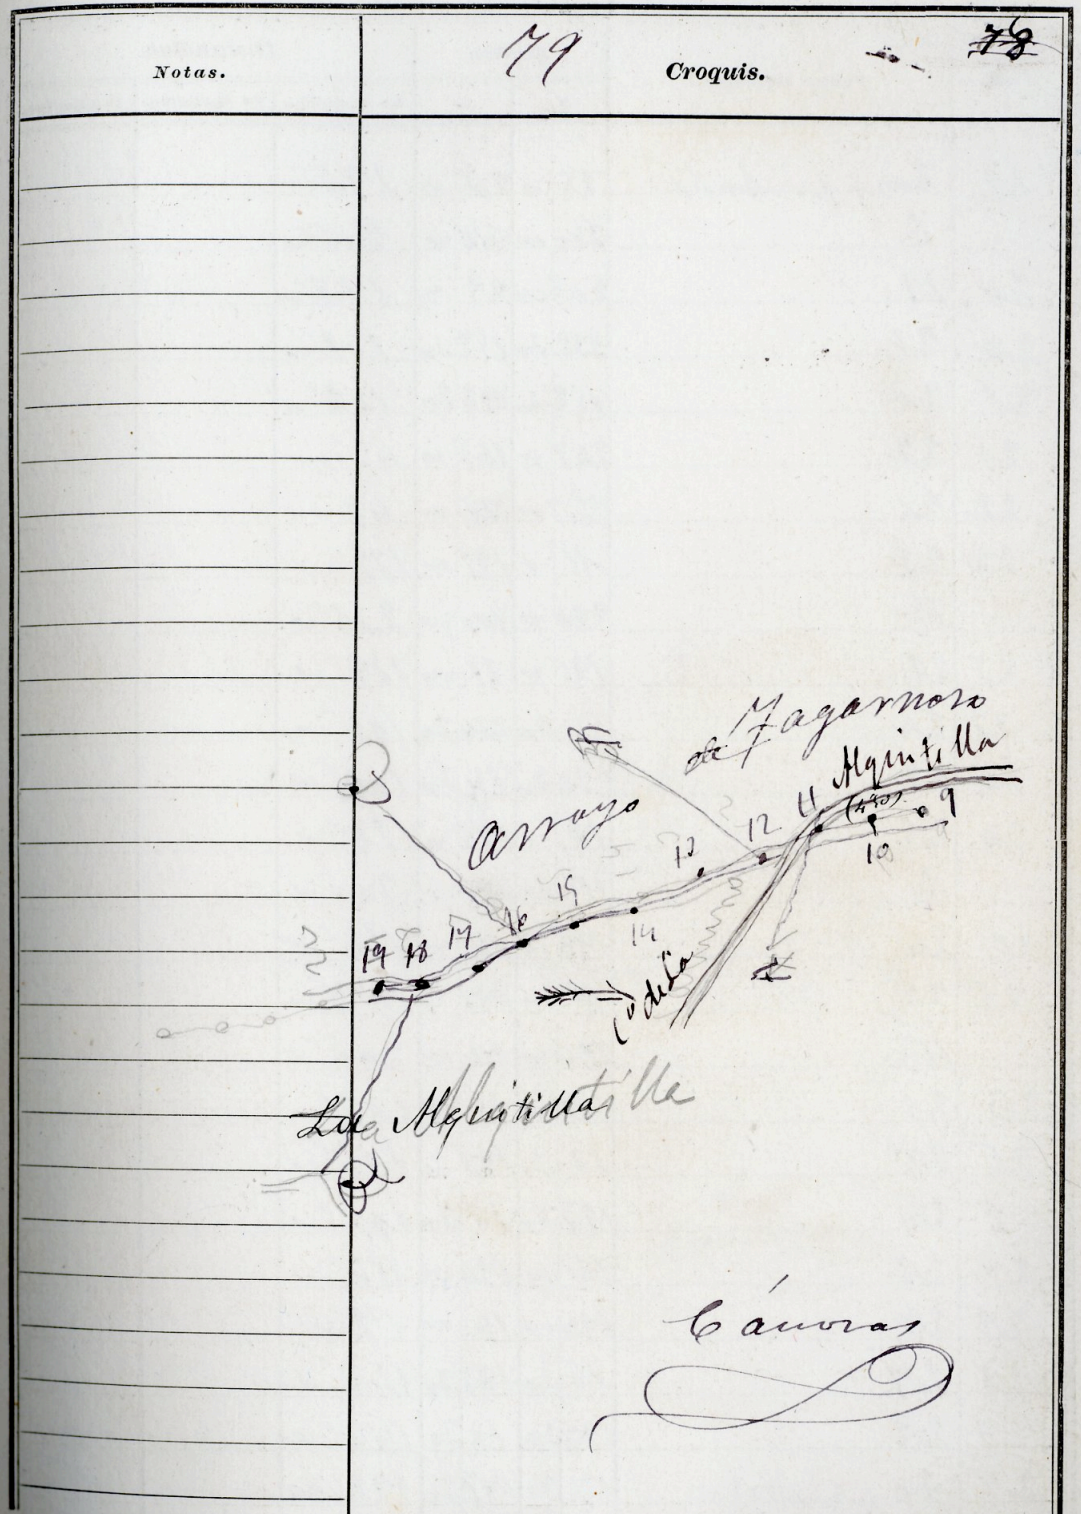 79
78
Notas.
Croquis.
Arroyo de Zagarnoso
Alquitilla
9
10
11
12
13
14
15
16
17
18
19
Cº de La
La Alquitilla
Cánovas